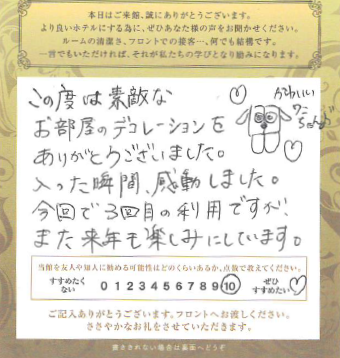 本日はご来館、誠にありがとうございます。
より良いホテルにする為に、ぜひあなた様の声をお聞かせください。
ルームの清潔さ、フロントでの接客…、何でも結構です。
一言でもいただければ、それが私たちの学びとなり励みになります。
この度は素敵な
お部屋のデコレーションを
ありがとうございました。
入った瞬間、感動しました。
今回で3回目の利用ですが、
また来年も楽しみにしています。
かわいい
ワン
ちゃん♪
当館を友人や知人に勧める可能性はどのくらいあるか、点数で教えてください。
すすめたく
ない
0 1 2 3 4 5 6 7 8 9 10
ぜひ
すすめたい
ご記入ありがとうございます。フロントへお渡しください。
ささやかなお礼をさせていただきます。
書ききれない場合は裏面へどうぞ